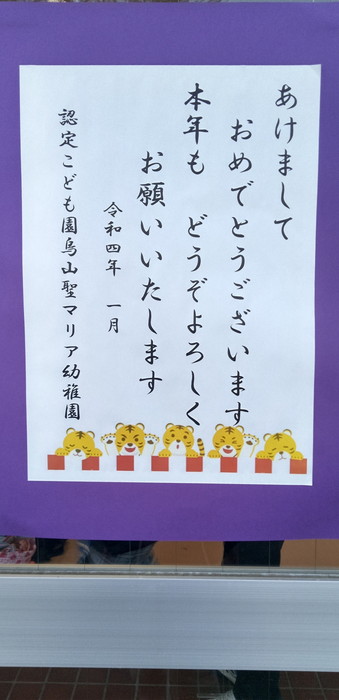 あけまして
おめでとうございます
本年も どうぞよろしく
お願いいたします
令和四年 一月
認定こども園烏山聖マリア幼稚園